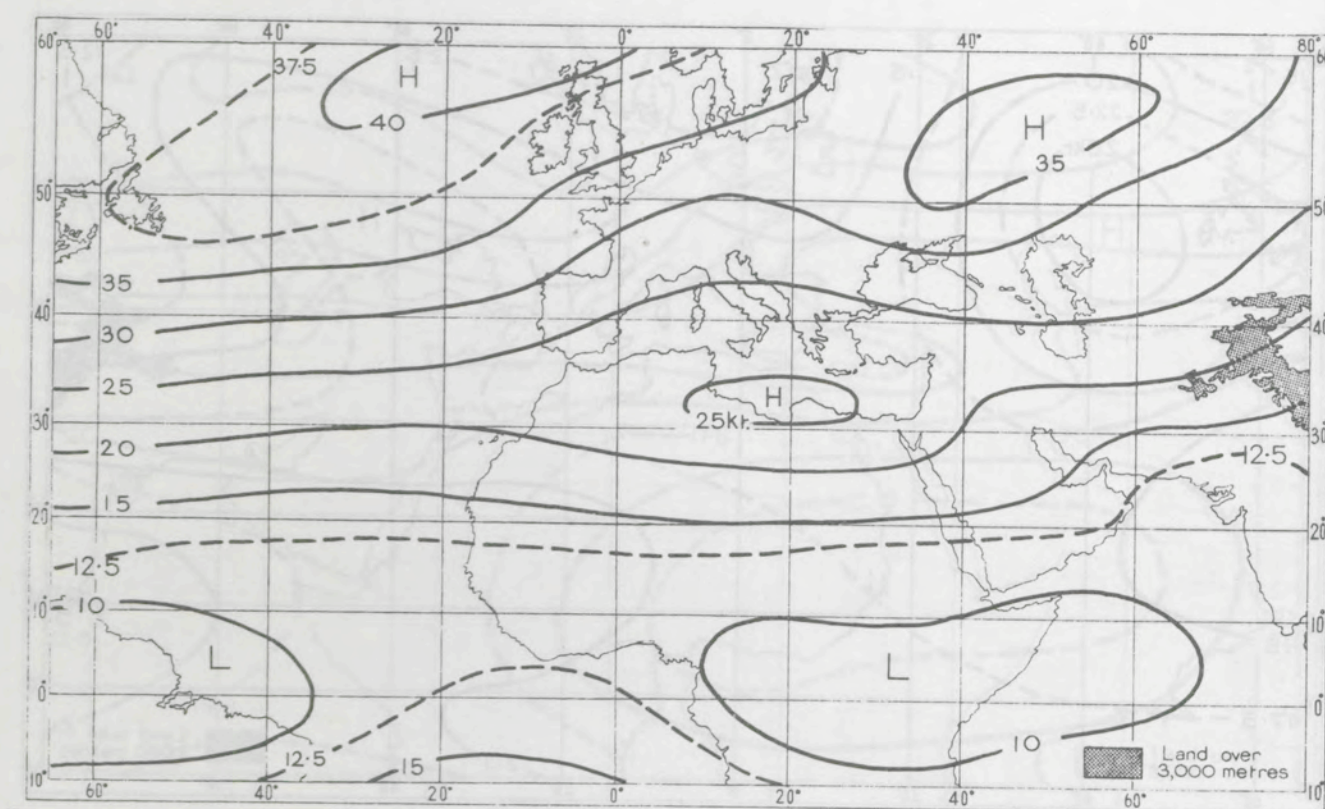 60° 40° 20° 0° 20° 40° 60° 80°
60° 60
37.5 H
40
H
35
50° 50
35
40° 40
30
25
H
25kr.
30° 30
20
12.5
15
20° 20
12.5
10
10° 10
L
L
0° 0
12.5
15
10
Land over
3,000 metres
10° 10
60° 40° 20° 0° 20° 40° 60° 80°